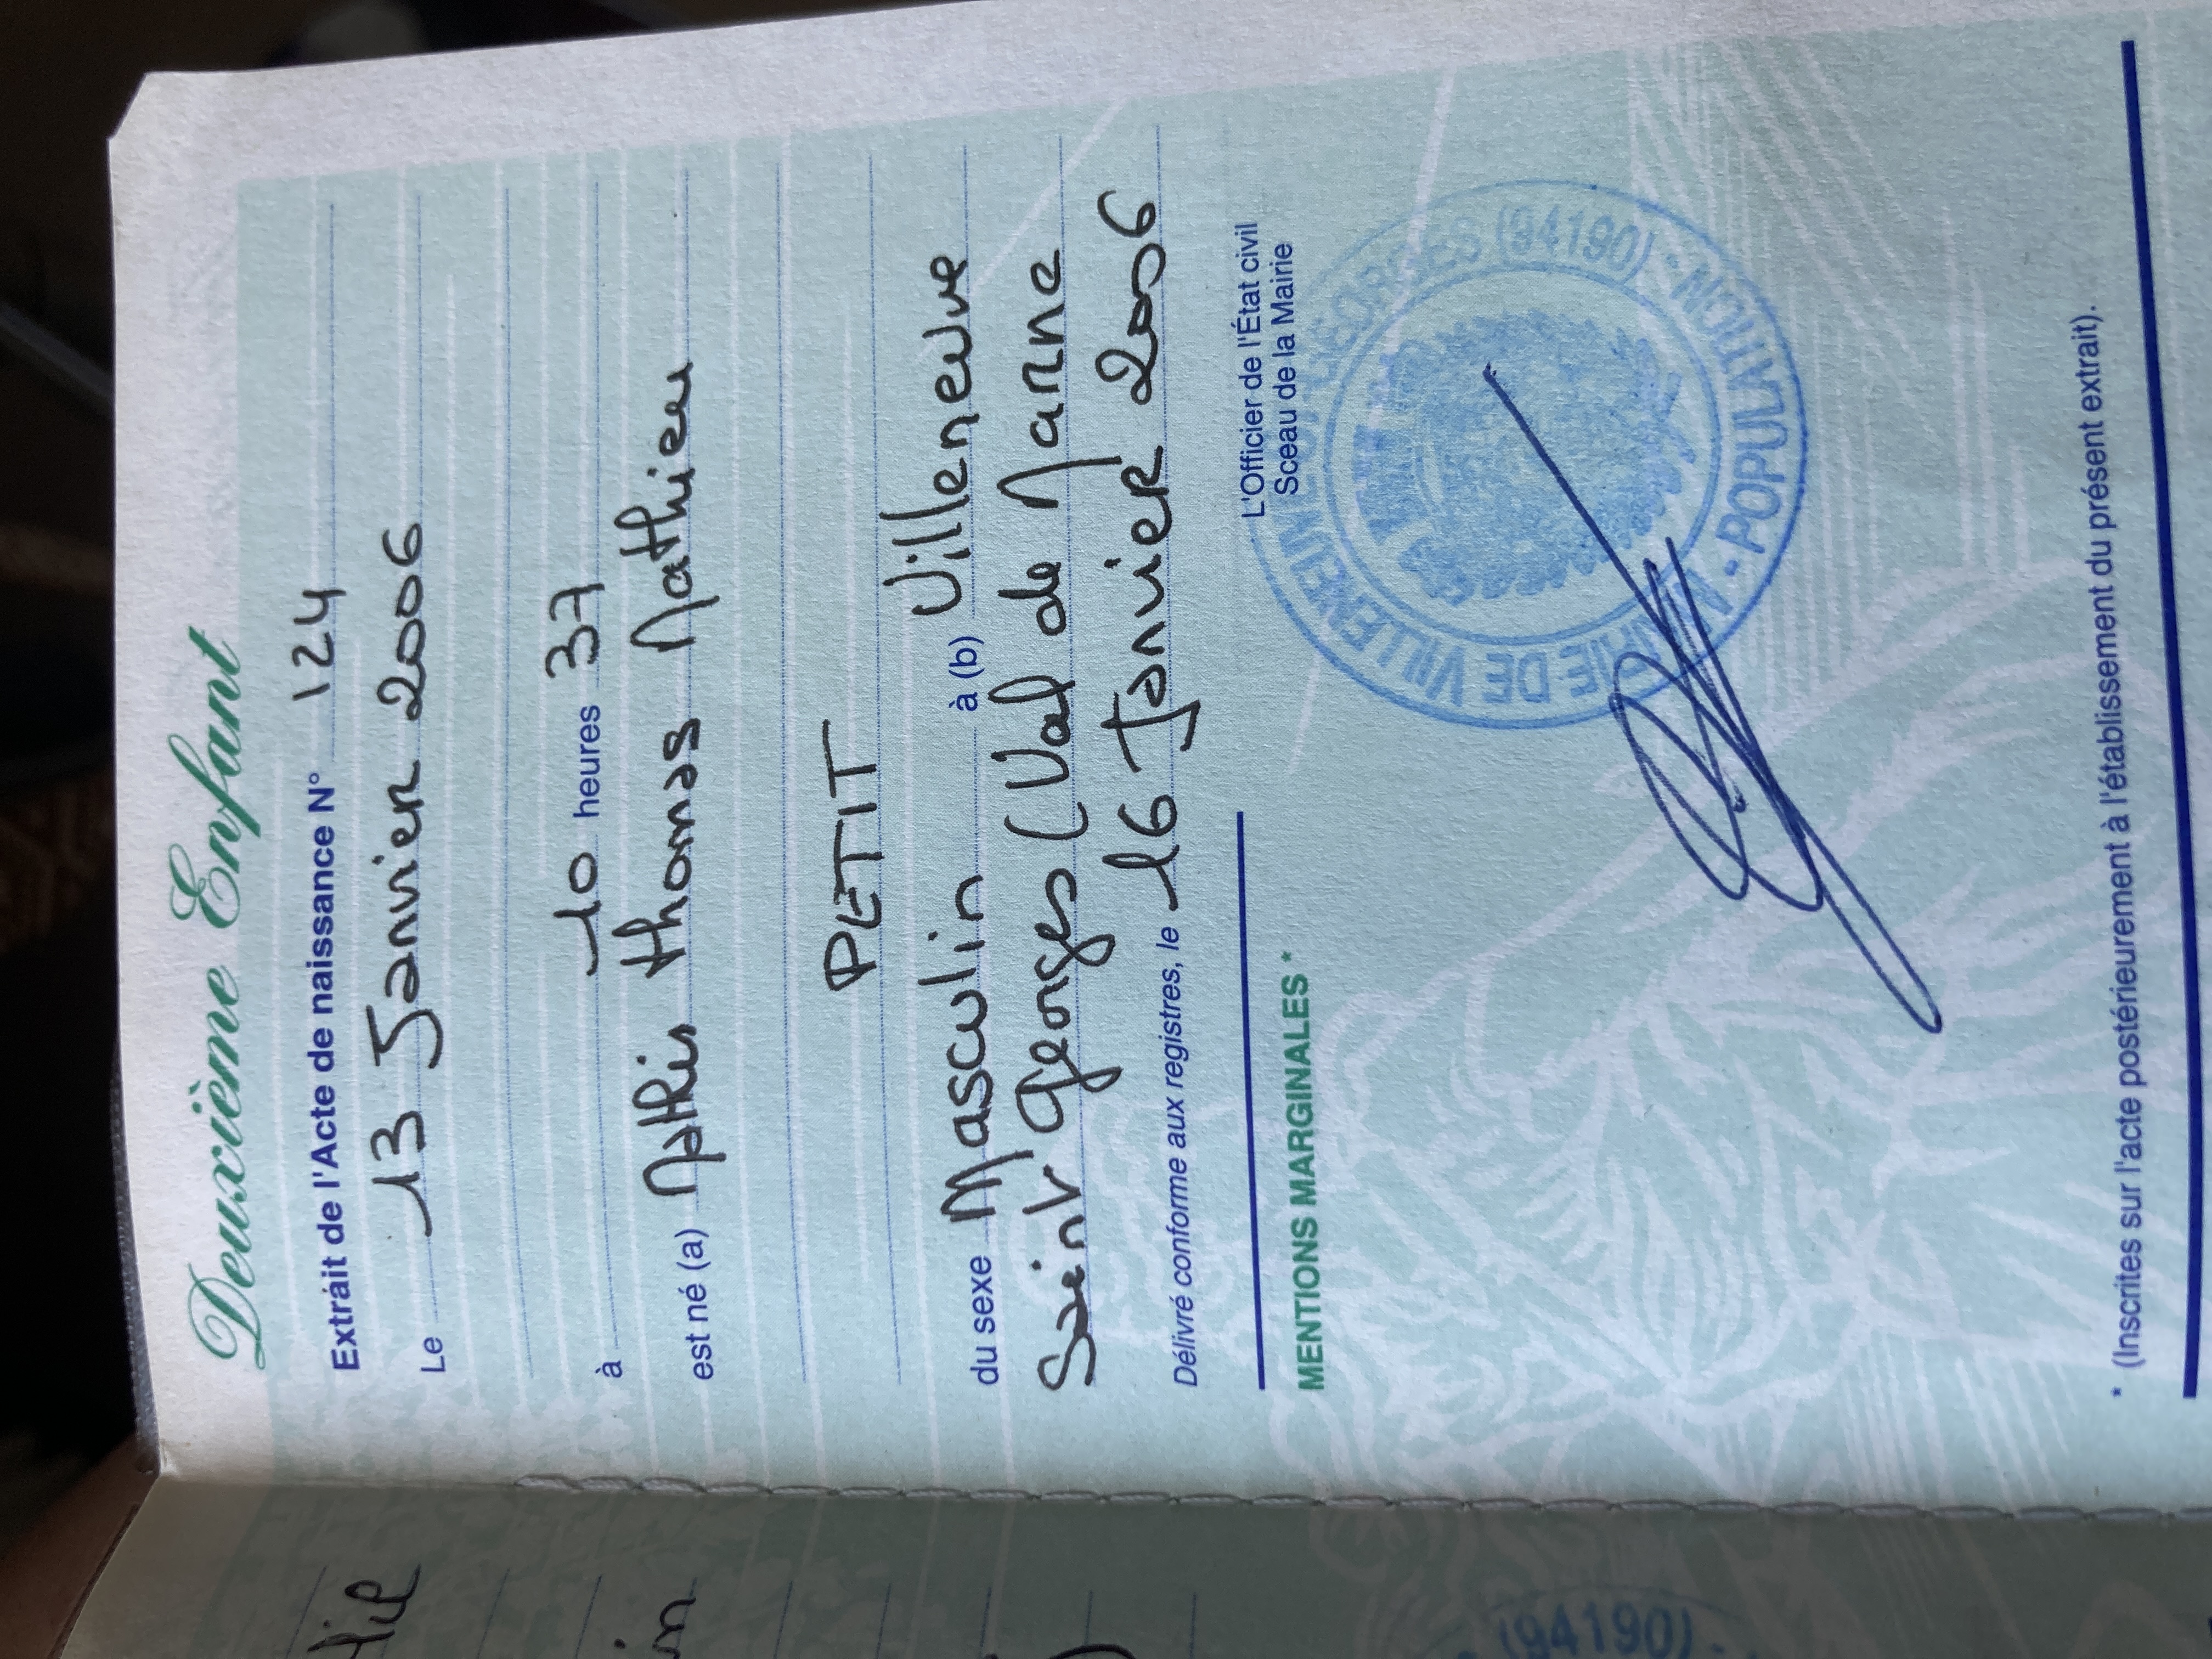 Deuxième Enfant
Extrait de l'Acte de naissance N° 124
Le 13 Janvier 2006
à 10 heures 37
est né (a) Mathis thomas Mathieu
PETIT
du sexe Masculin à (b) Villeneuve
Saint Georges (Val de Marne
Délivré conforme aux registres, le 16 Janvier 2006
L'Officier de l'État civil
Sceau de la Mairie
MENTIONS MARGINALES *
DE VILLENEUVE GEORGES (94190) -
- POPULATION
* (Inscrites sur l'acte postérieurement à l'établissement du présent extrait).
(94190)